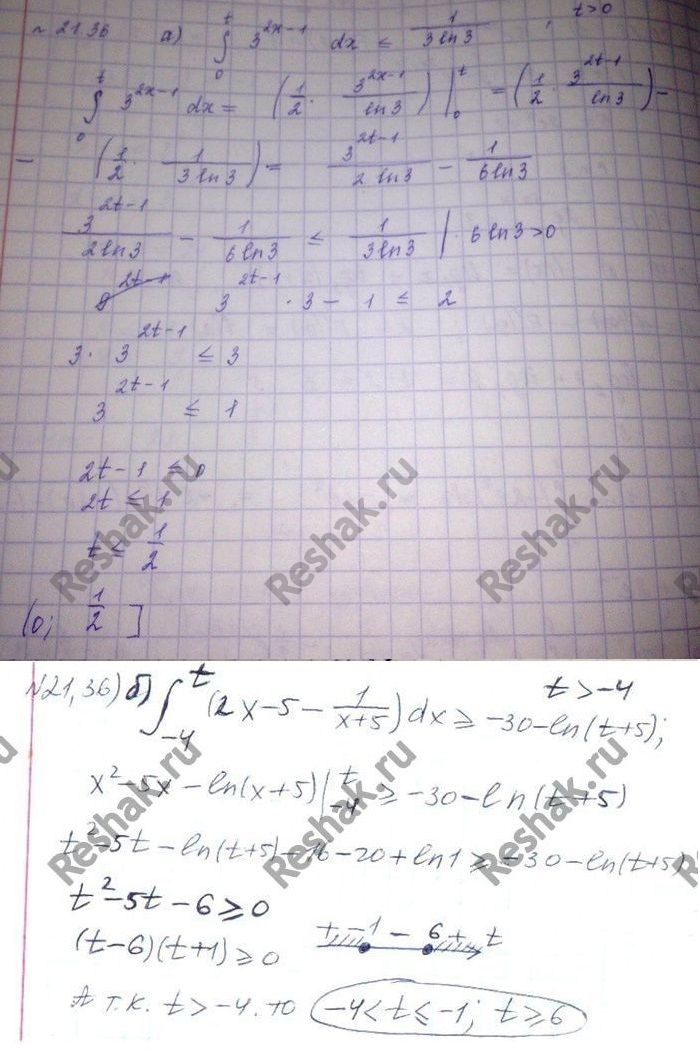 № 21.36 а) ∫₀ᵗ 3^(2x-1) dx ≤ 1/(3 ln3) , t>0
∫₀ᵗ 3^(2x-1) dx = (1/2 · 3^(2x-1)/ln3) |₀ᵗ = (1/2 · 3^(2t-1)/ln3) −
− (1/2 · 1/(3 ln3)) = 3^(2t-1)/(2 ln3) − 1/(6 ln3)
3^(2t-1)/(2 ln3) − 1/(6 ln3) ≤ 1/(3 ln3) | · 6 ln3 > 0
3^(2t-1) · 3 − 1 ≤ 2
3 · 3^(2t-1) ≤ 3
3^(2t-1) ≤ 1
2t − 1 ≤ 0
2t ≤ 1
t ≤ 1/2
(0; 1/2]
N21,36) б) ∫₋₄ᵗ (2x−5−1/(x+5)) dx ≥ −30−ln(t+5); t>−4
x²−5x−ln(x+5) |₋₄ᵗ ≥ −30−ln(t+5)
t²−5t−ln(t+5)−16−20+ln1 ≥ −30−ln(t+5)
t²−5t−6≥0
(t−6)(t+1)≥0 + −1 − 6 + t
А т.к. t>−4. то −4<t≤−1; t≥6
Reshak.ru
Reshak.ru
Reshak.ru
Reshak.ru